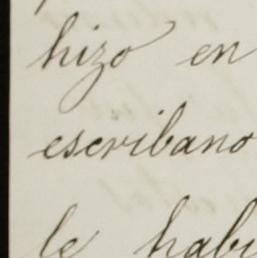 hizo en
escribano
le habi